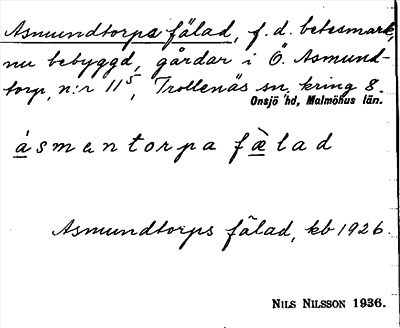 Asmundtorps fälad, f. d. betesmark,
nu bebyggd, gårdar i Ö. Asmund-
torp, n:r 11⁵, Trollenäs sn. kring 8.
Onsjö hd, Malmöhus län.
ásmentorpa fæ̀lad
Asmundtorps fälad, kb 1926.
NILS NILSSON 1936.